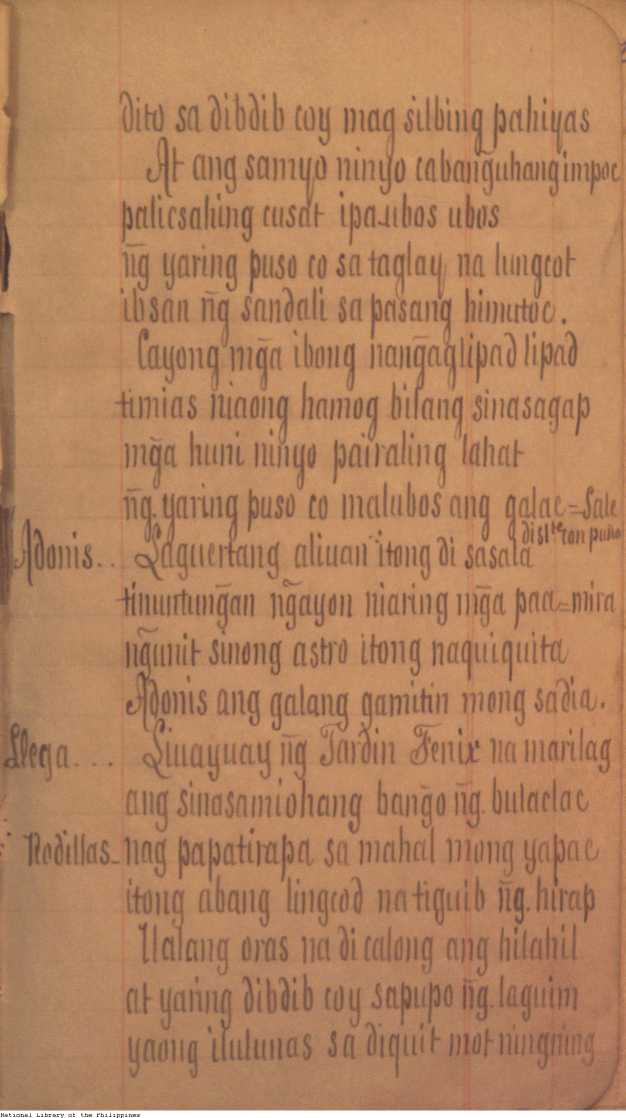 dito sa dibdib coy mag silbing pahiyas
At ang samyo ninyo cabanguhang impoc
palicsahing cusat ipaubos ubos
n͠g yaring puso co sa taglay na lungcot
ibsan n͠g sandali sa pasang himutoc.
Cayong mg̃a ibong nang̃aglipad lipad
timias niaong hamog bilang sinasagap
mg̃a huni ninyo pairaling lahat
n͠g. yaring puso co malubos ang galac = Sale
dislte con puño
Adonis.. Laguertang aliuan itong di sasala
tinutung̃an ng̃ayon niaring mg̃a paa = mira
ng̃unit sinong astro itong naquiquita
Adonis ang galang gamitin mong sadia.
Llega.... Liuayuay n͠g Jardin Fenix na marilag
ang sinasamiohang bang̃o n͠g. bulaclac
Rodillas - nag papatirapa sa mahal mong yapac
itong abang lingcod na tiguib n͠g. hirap
Ualang oras na di calong ang hilahil
at yaring dibdib coy sapupo n͠g. laguim
yaong ilulunas sa diquit mot ningning
National Library of the Philippines